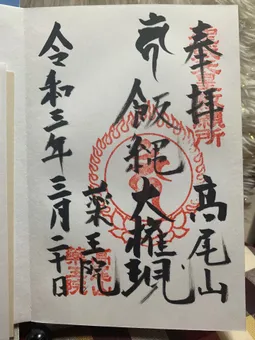 奉拝 高尾山
飯縄大権現
薬王院
令和三年三月二十日